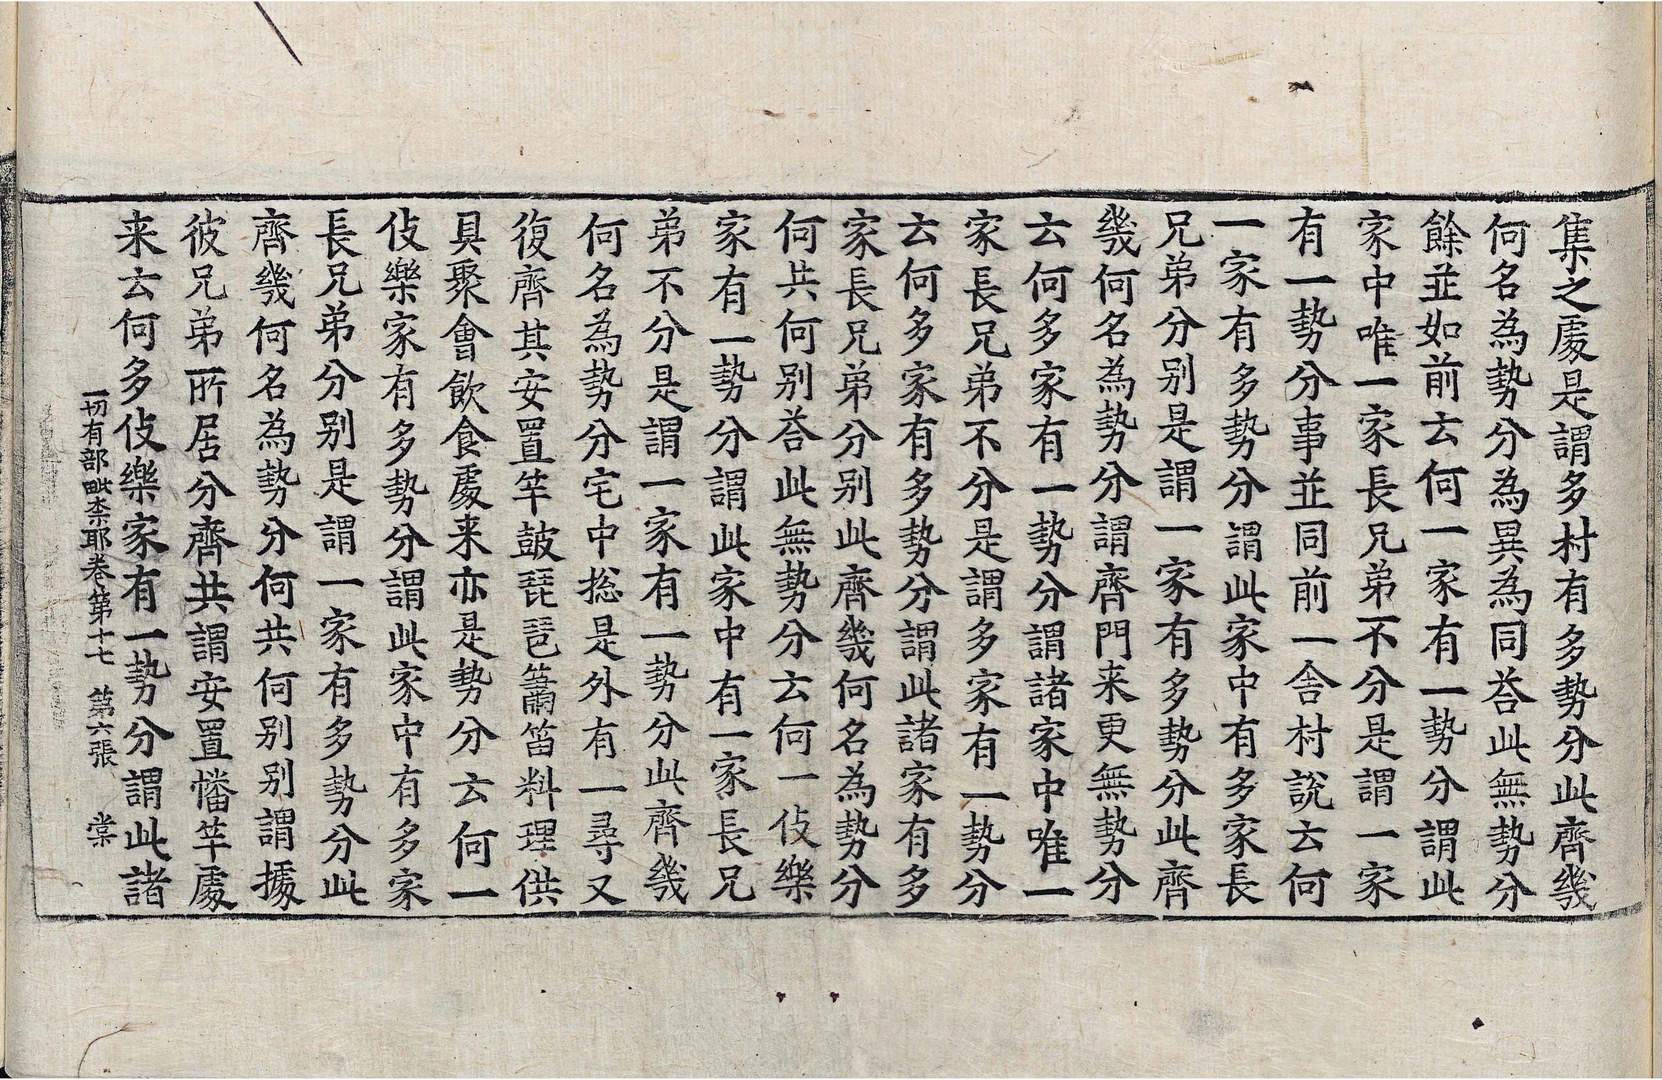 集之處是謂多村有多勢分此齊幾
何名為勢分為異為同荅此無勢分
餘並如前云何一家有一勢分謂此
家中唯一家長兄弟不分是謂一家
有一勢分事並同前一舍村說云何
一家有多勢分謂此家中有多家長
兄弟分別是謂一家有多勢分此齊
幾何名為勢分謂齊門来更無勢分
云何多家有一勢分謂諸家中唯一
家長兄弟不分是謂多家有一勢分
云何多家有多勢分謂此諸家有多
家長兄弟分別此齊幾何名為勢分
何共何別荅此無勢分云何一伎樂
家有一勢分謂此家中有一家長兄
弟不分是謂一家有一勢分此齊幾
何名為勢分宅中捴是外有一尋又
復齊其安置竿鼓琵琶簫笛料理供
具聚會飲食處来亦是勢分云何一
伎樂家有多勢分謂此家中有多家
長兄弟分別是謂一家有多勢分此
齊幾何名為勢分何共何別別謂據
彼兄弟所居分齊共謂安置幡竿處
来云何多伎樂家有一勢分謂此諸
一切有部毗柰耶卷第十七 第六張 棠